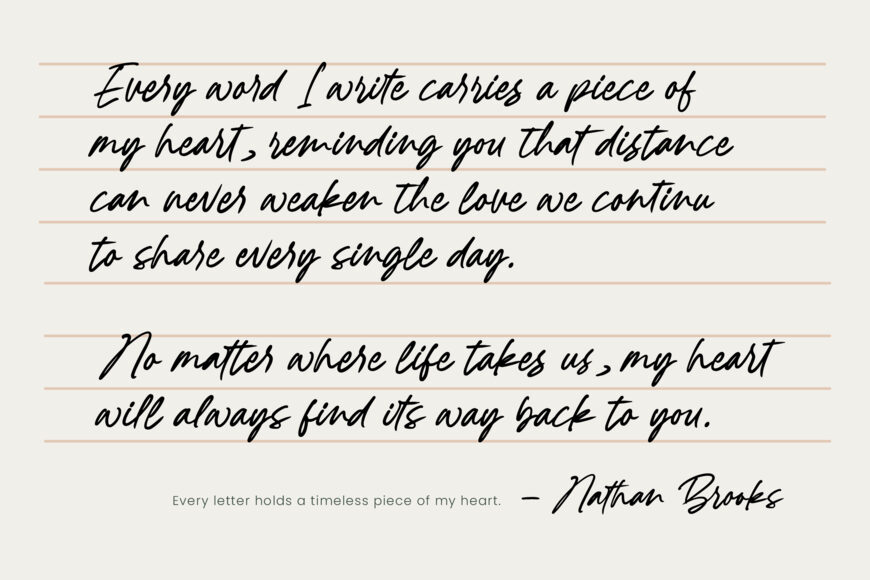 Every word I write carries a piece of
my heart, reminding you that distance
can never weaken the love we continu
to share every single day.
No matter where life takes us, my heart
will always find its way back to you.
Every letter holds a timeless piece of my heart. – Nathan Brooks